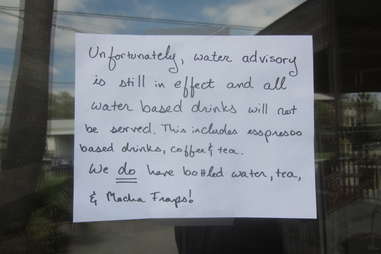 Unfortunately, water advisory
is still in effect and all
water based drinks will not
be served. This includes esspresso
based drinks, coffee & tea.
We do have bottled water, tea,
& Mocha Fraps!